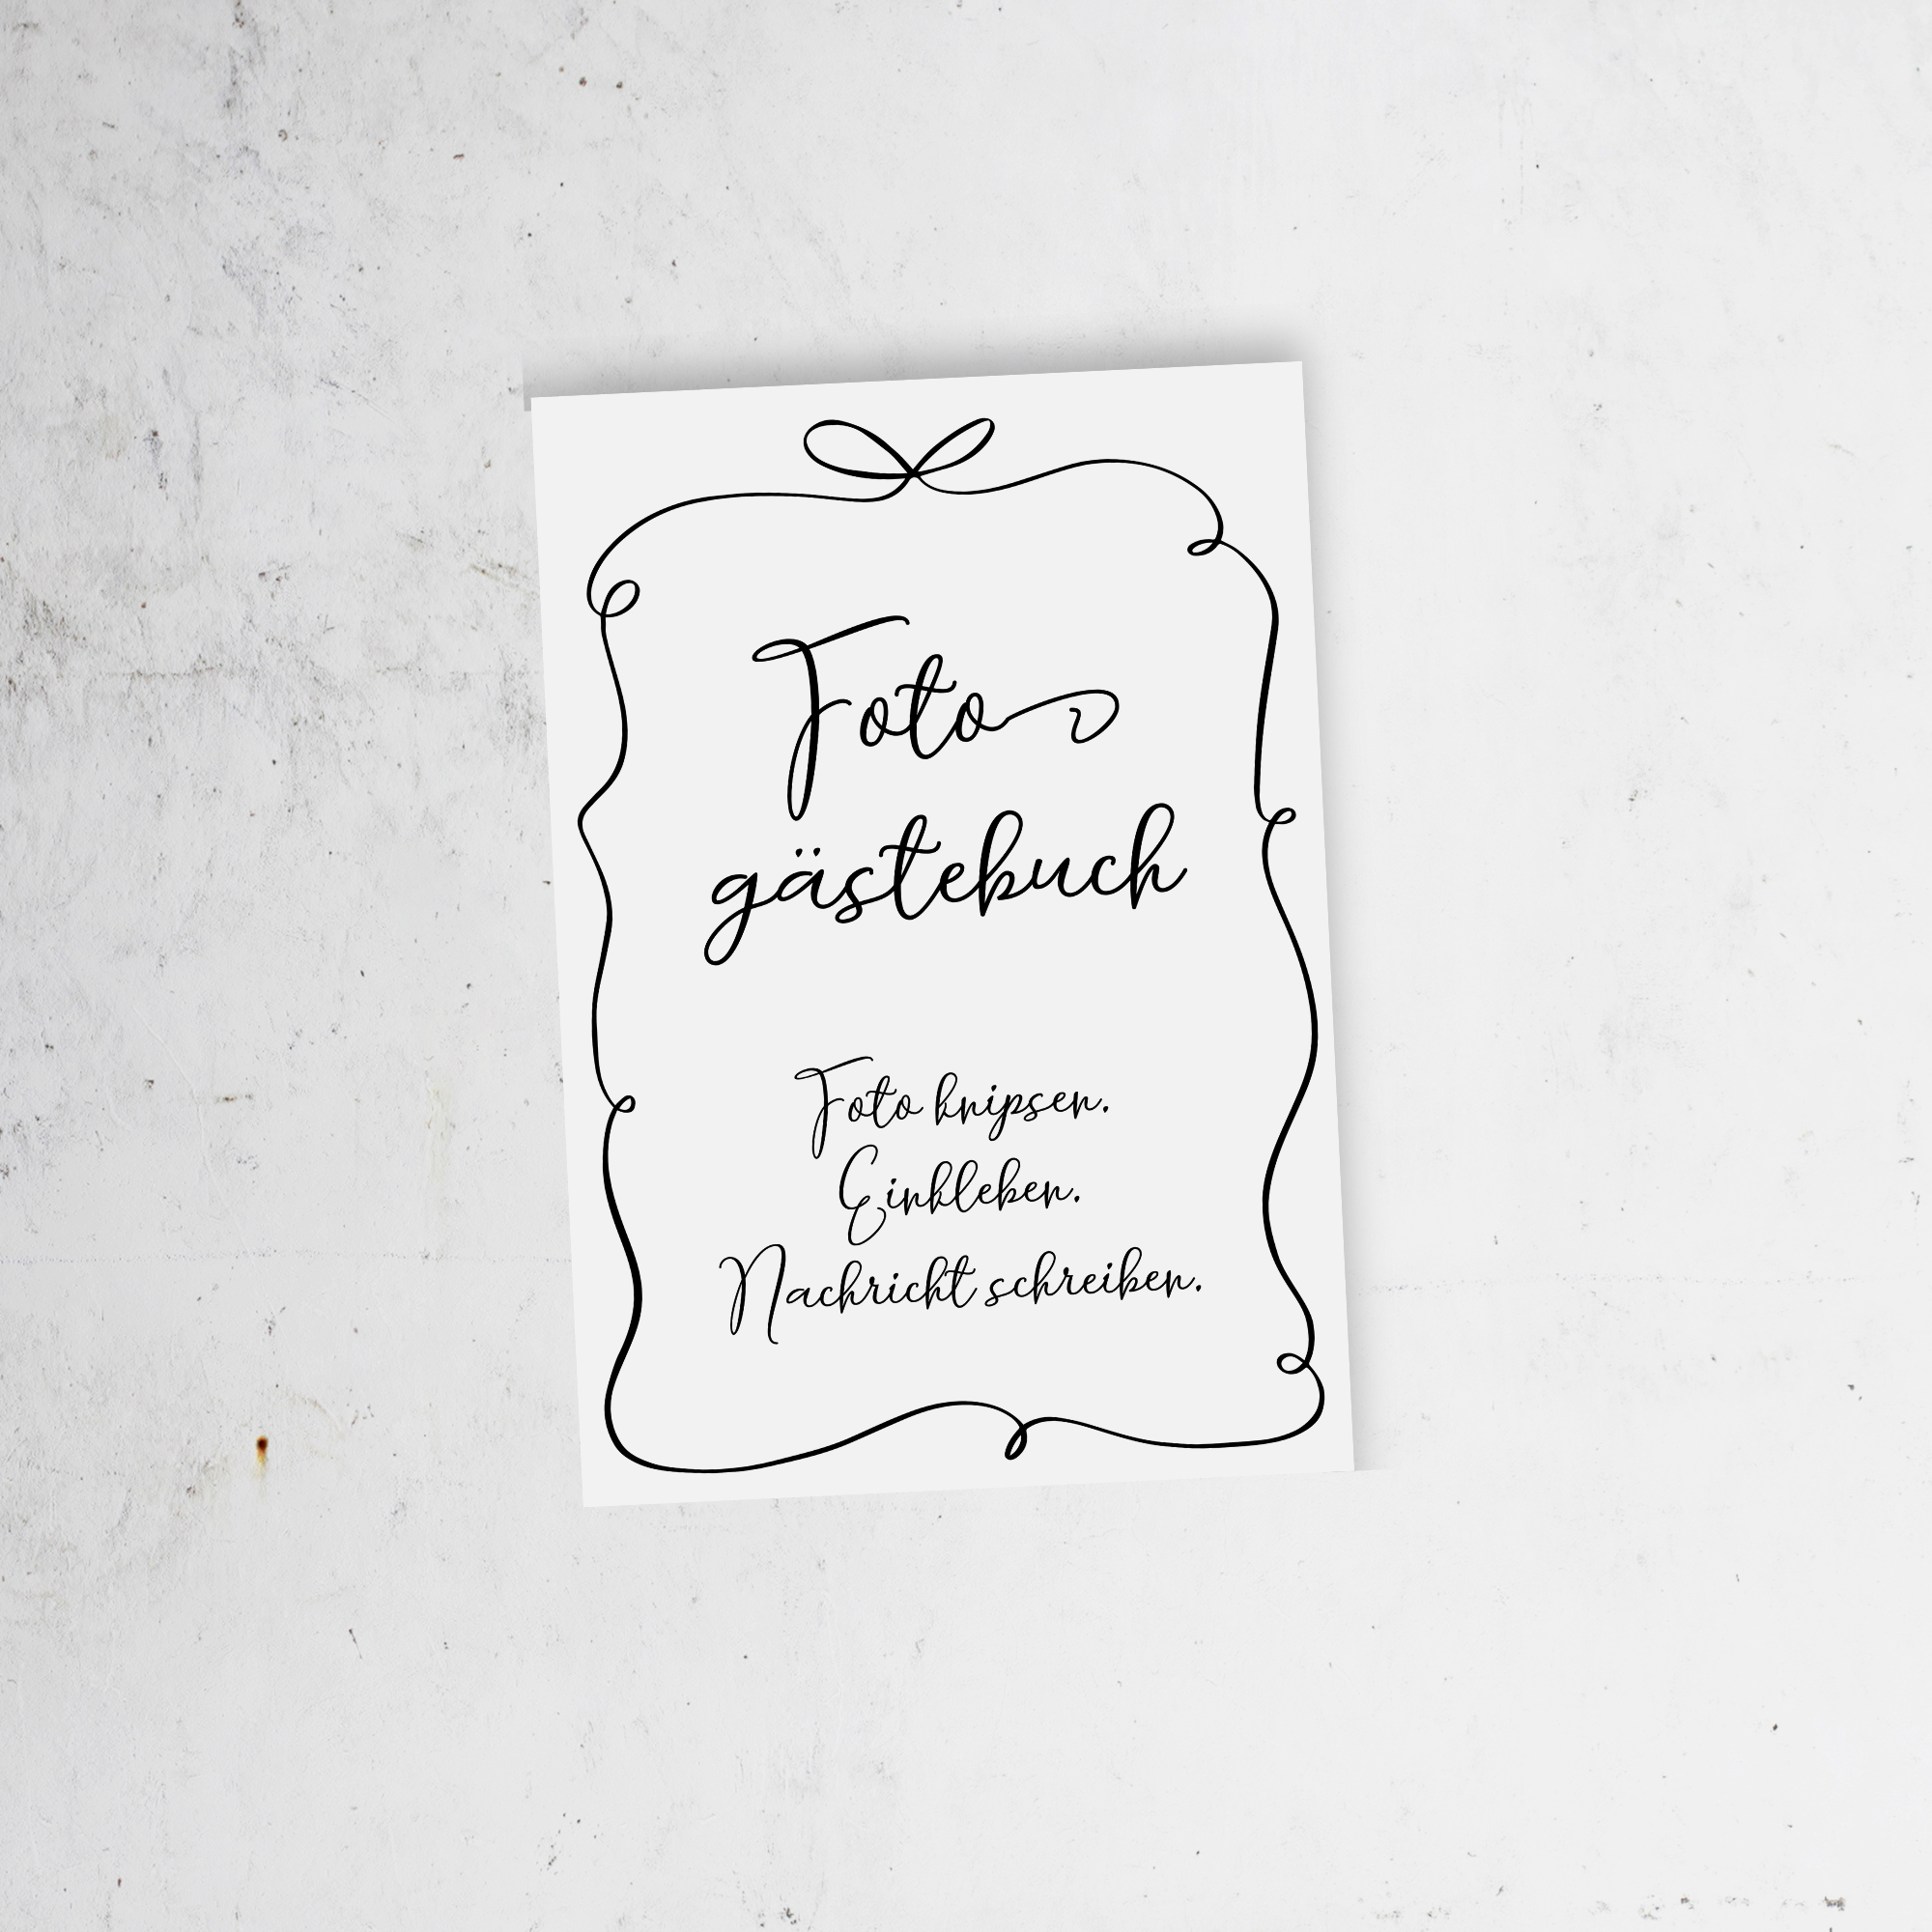 Foto
gästebuch
Foto knipsen.
Einkleben.
Nachricht schreiben.